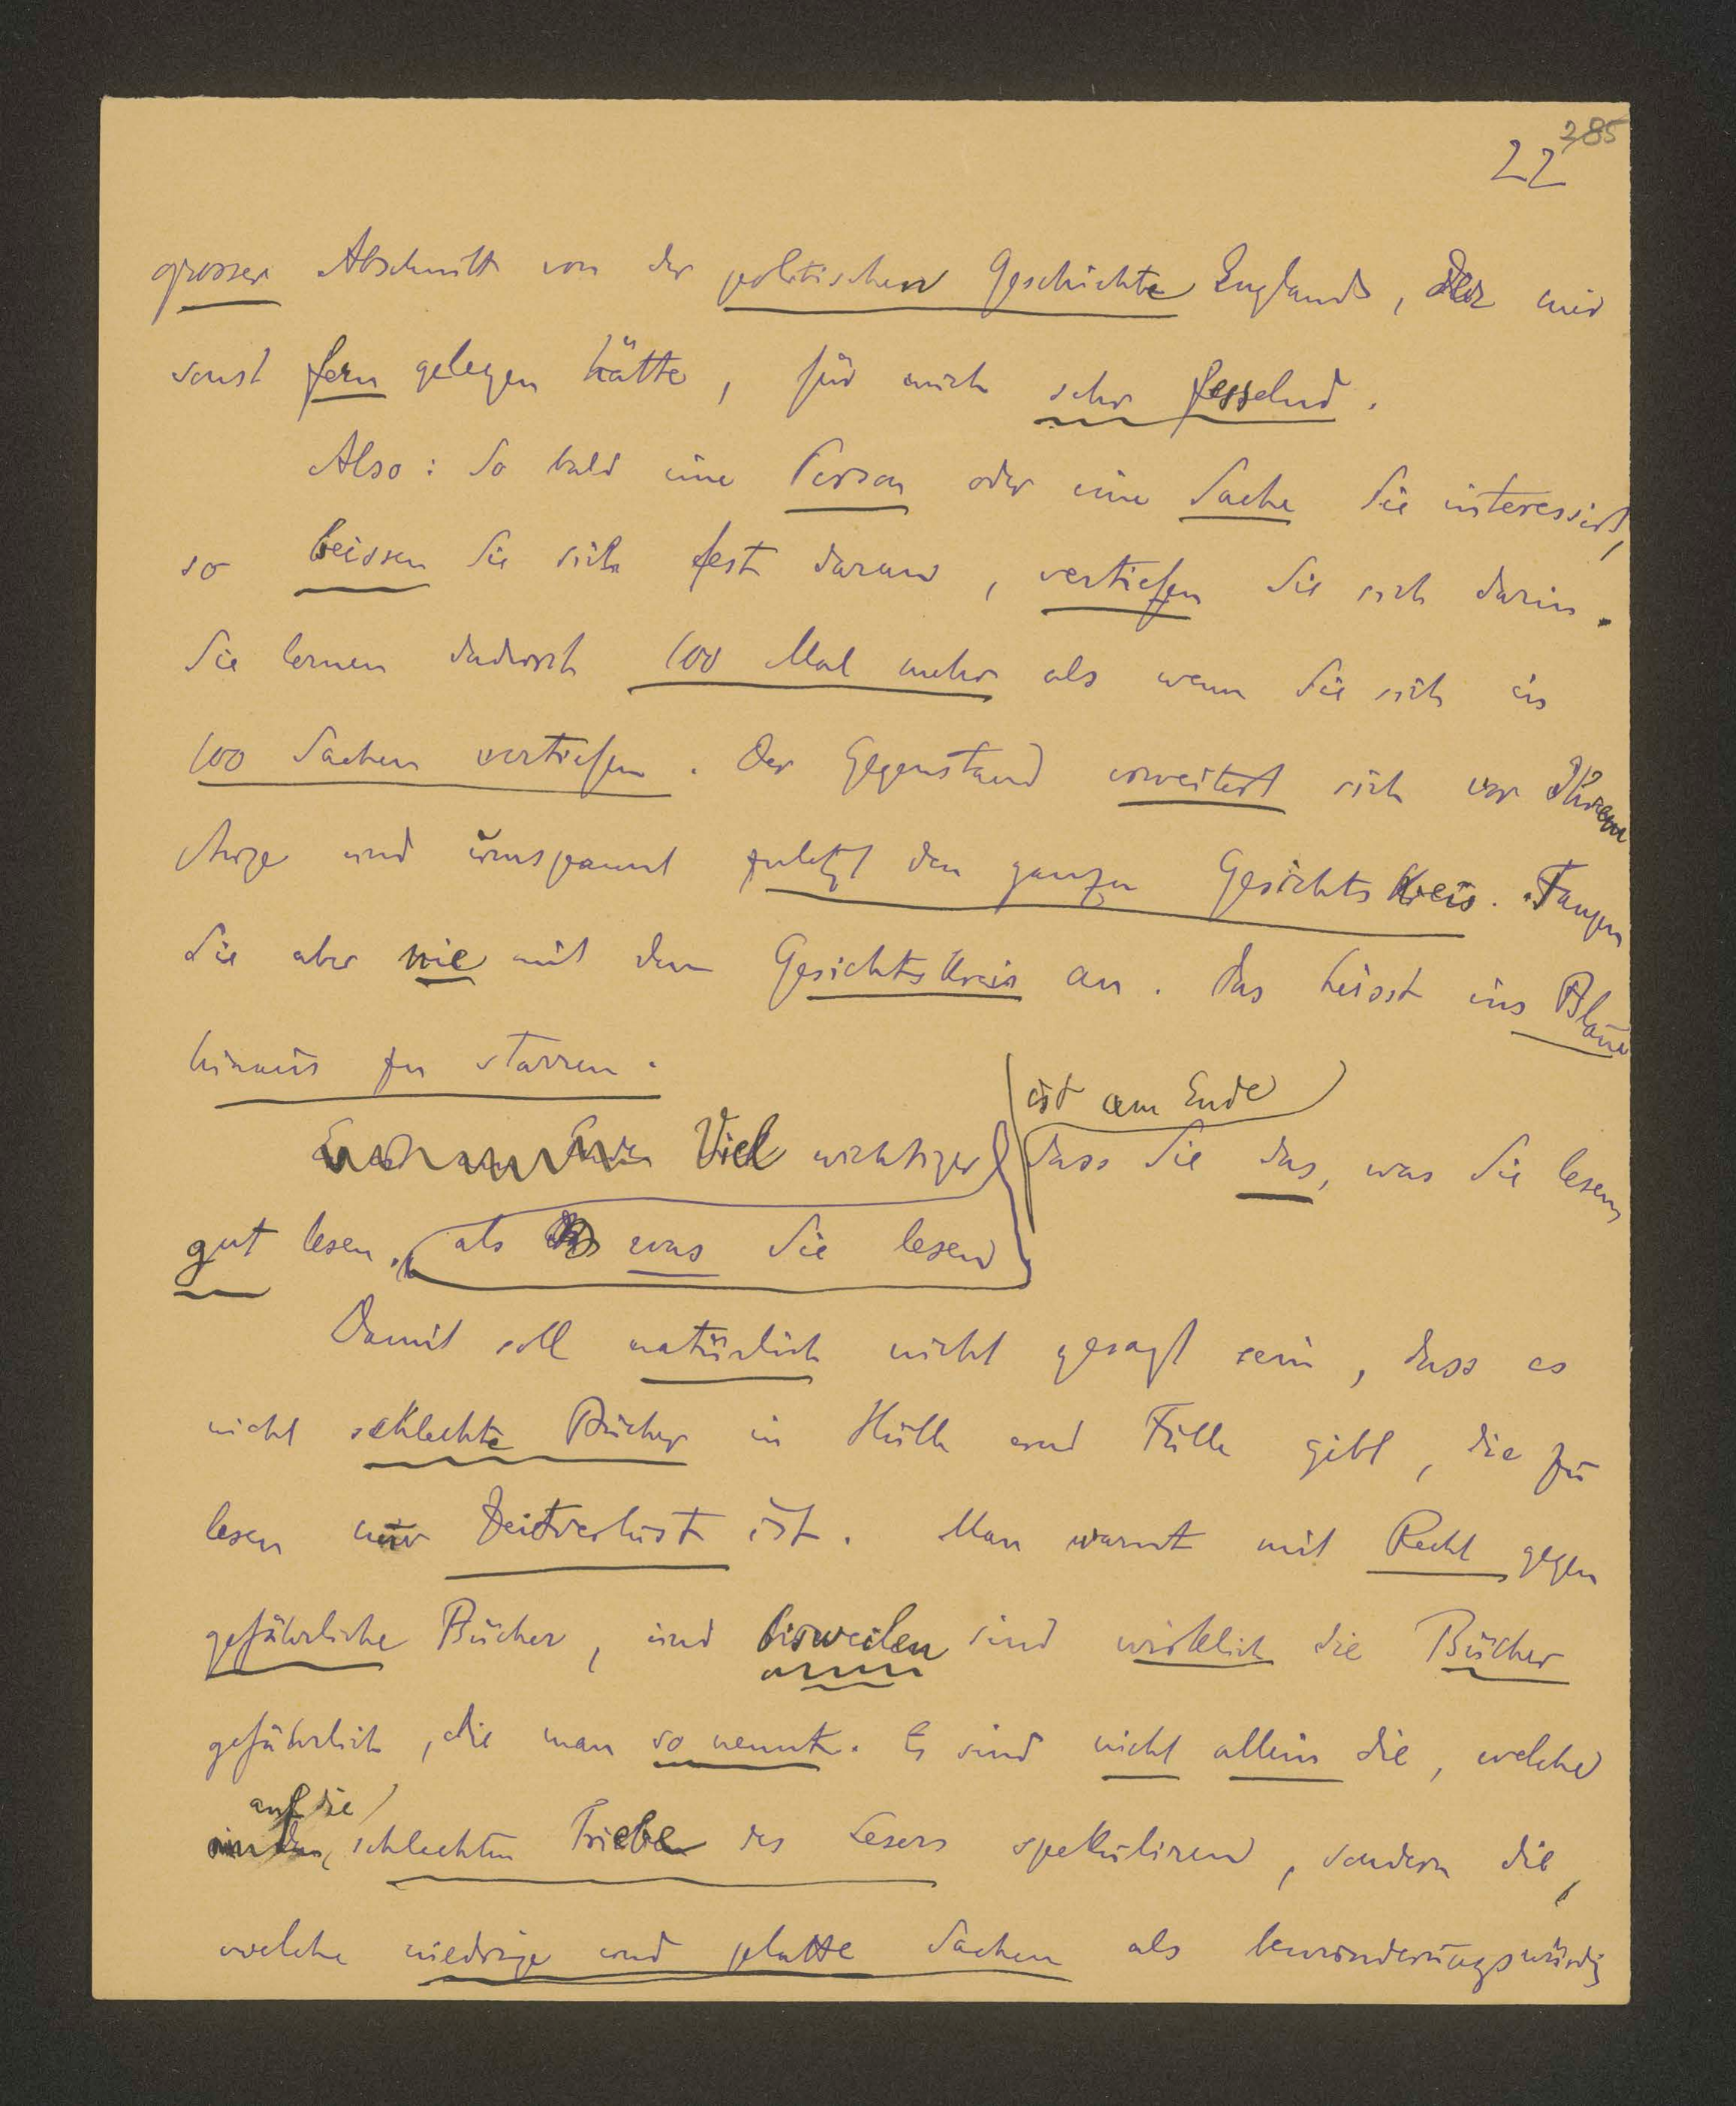 285
22
grosser Abschnitt von der politischen Geschichte Englands, der mir
sonst fern gelegen hätte, für mich sehr fesselnd.
Also: So bald eine Person oder eine Sache Sie interessirt,
so beissen Sie sich fest daran, vertiefen Sie sich darin.
Sie lernen dadurch 100 Mal mehr als wenn Sie sich in
100 Sachen vertiefen. Der Gegenstand erweitert sich vor Ihrem
Auge und umspannt zuletzt den ganzen Gesichtskreis. Fangen
Sie aber nie mit dem Gesichtskreis an. Das heisst ins Blaue
hinaus zu starren.
ist am Ende
Viel wichtiger dass Sie das, was Sie lesen,
gut lesen, als was Sie lesen
Damit soll natürlich nicht gesagt sein, dass es
nicht schlechte Bücher in Hülle und Fülle gibt, die zu
lesen nur Zeitverlust ist. Man warnt mit Recht gegen
gefährliche Bücher, und bisweilen sind wirklich die Bücher
gefährlich, die man so nennt. Es sind nicht allein die, welche
auf die
schlechten Triebe des Lesers spekuliren, sondern die,
welche niedrige und platte Sachen als bewunderungswürdig